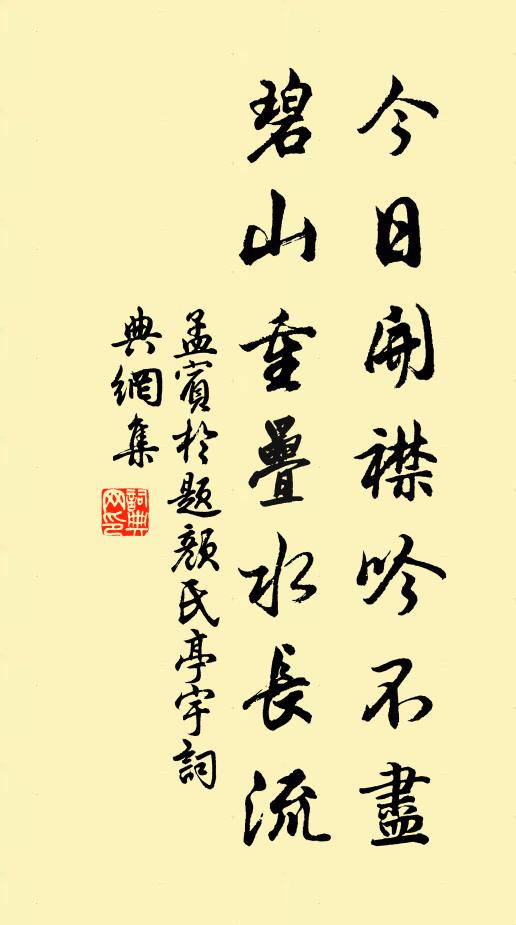 今日開襟吟不盡
碧山重疊水長流
孟賓於題顏氏亭宇詞
典網集
詞典
网印